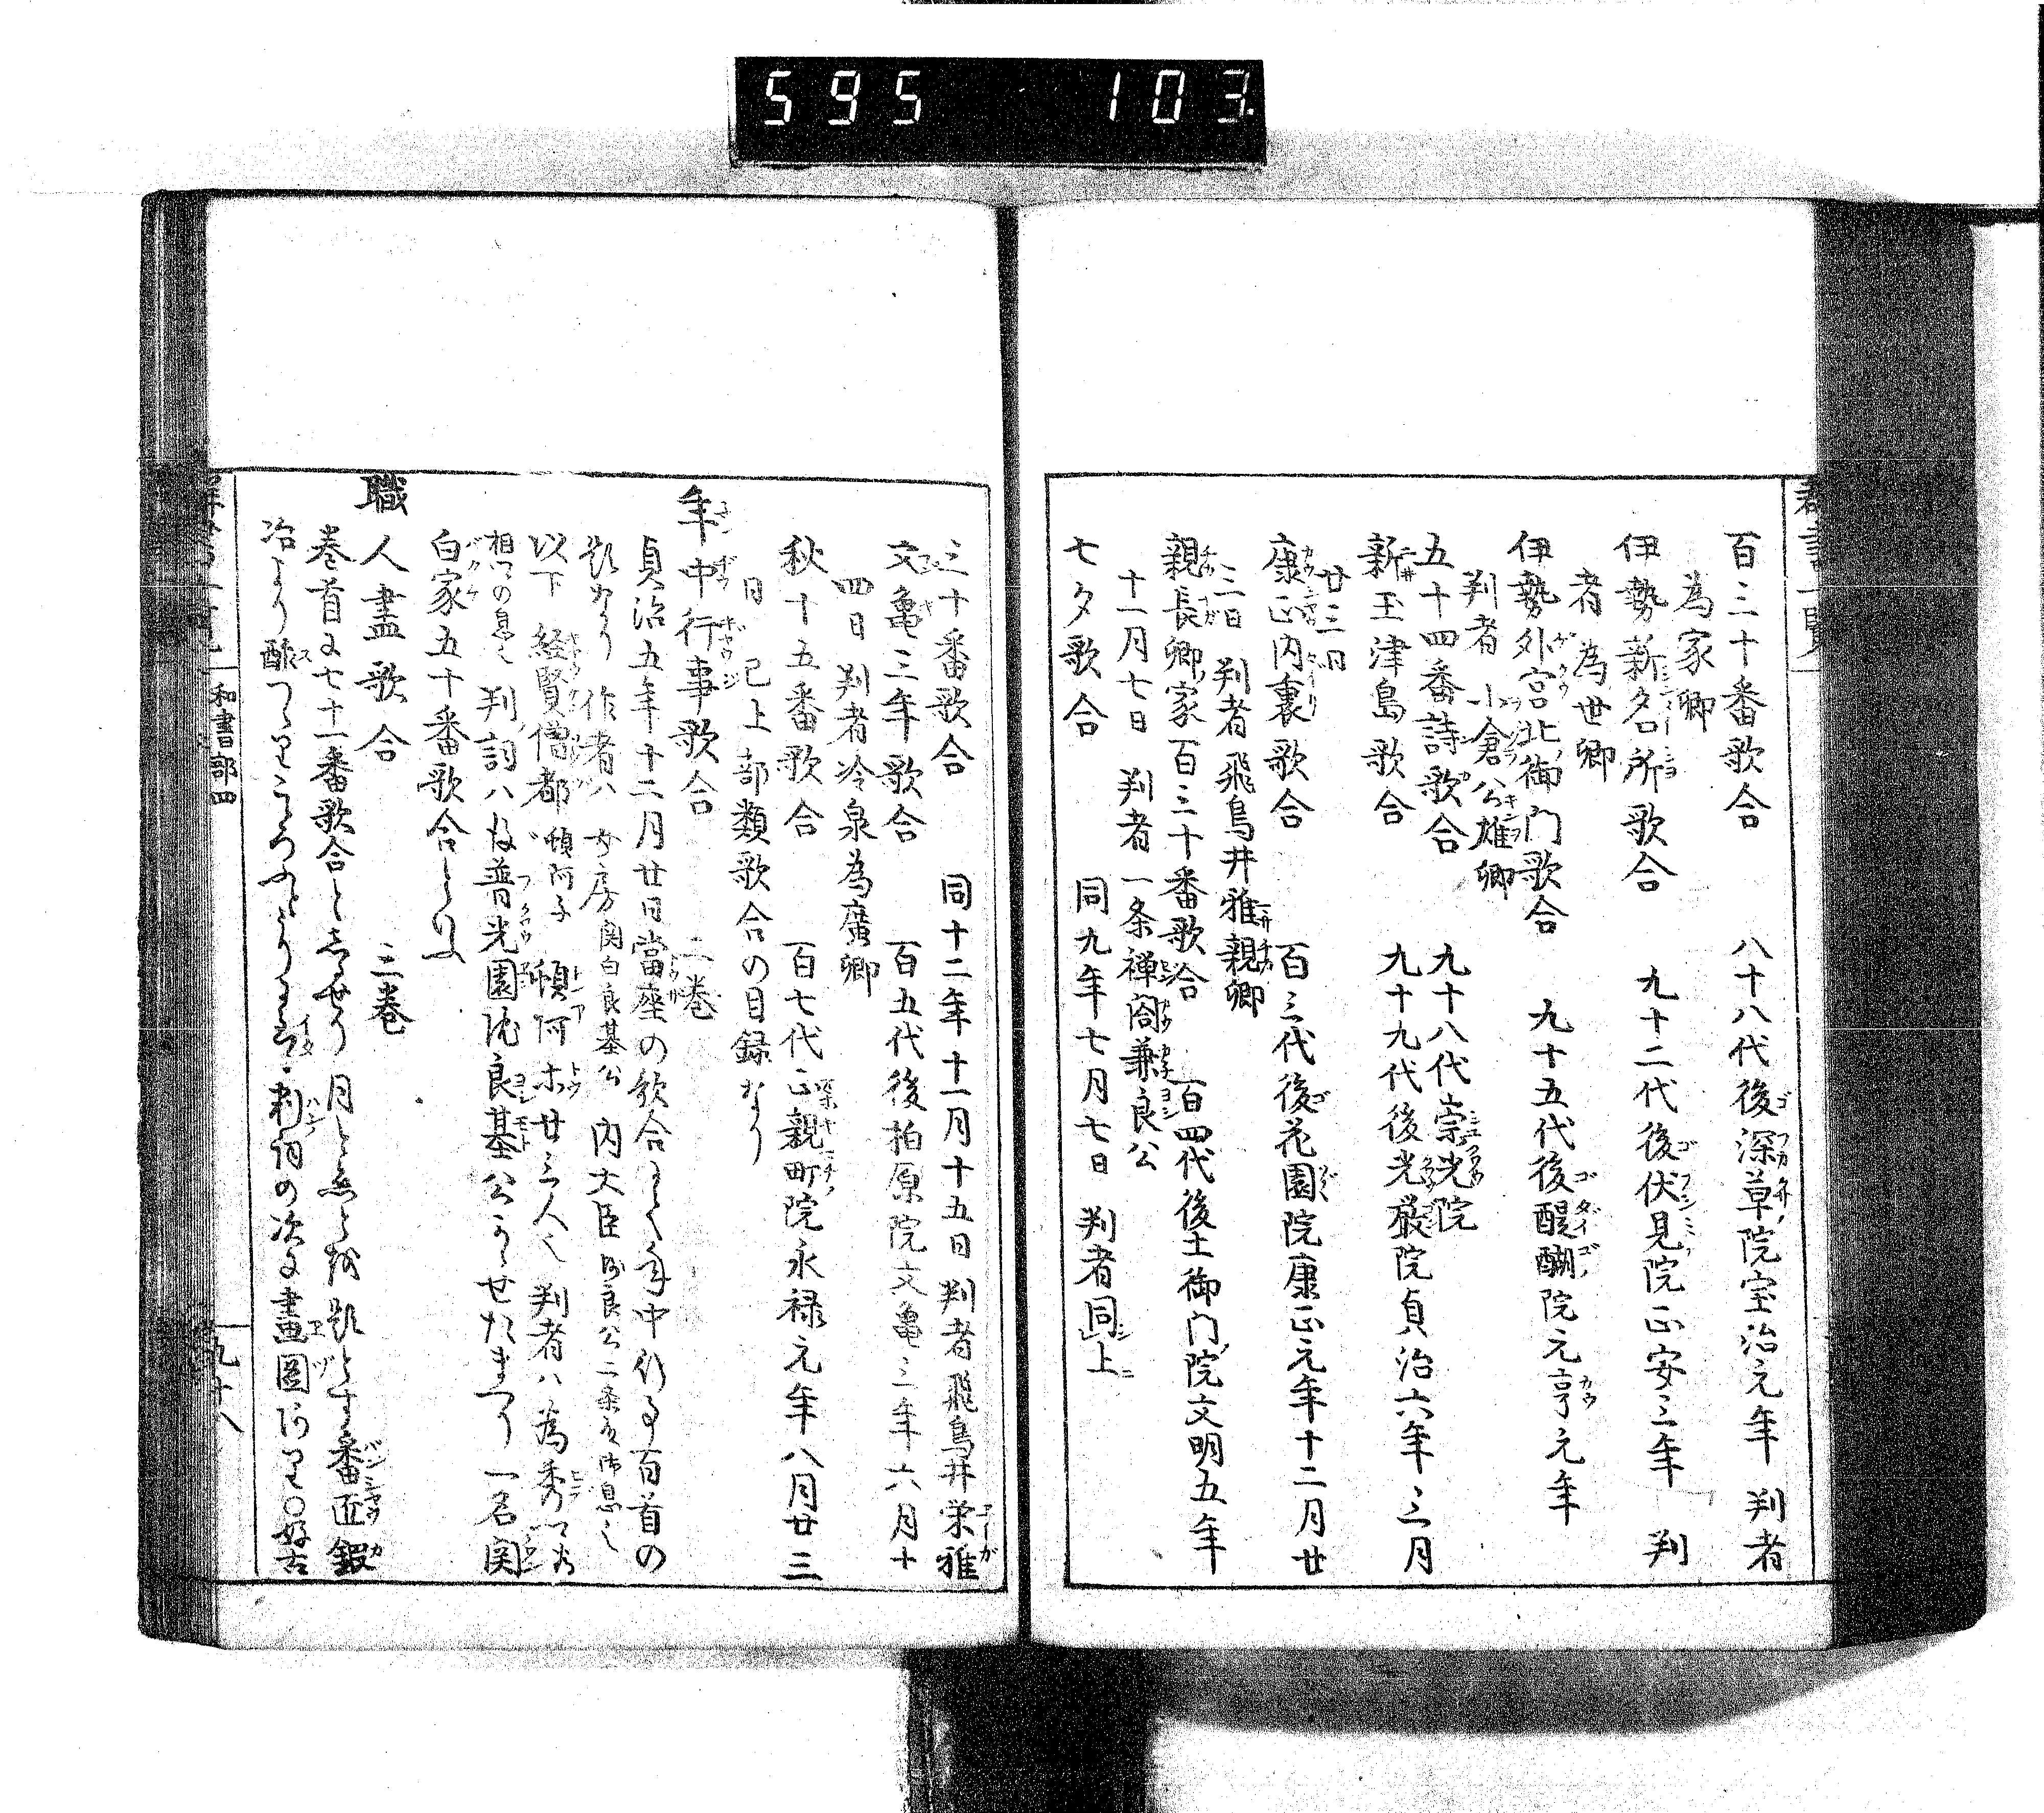 595 103
百三十番歌合 八十八代後深草院宝治元年 判者
為家卿
伊勢新名所歌合 九十二代後伏見院正安三年 判
者 為世卿
伊勢外宮北御門歌合 九十五代後醍醐院元亨元年
判者 小倉公雄卿
五十四番詩歌合 九十八代崇光院
新玉津島歌合 九十九代後光厳院貞治六年三月
廿三日
康正内裏歌合 百三代後花園院康正元年十二月廿
二日 判者飛鳥井雅親卿
親長卿家百三十番歌合 百四代後土御門院文明五年
十一月七日 判者一条禅閤兼良公
七夕歌合 同九年七月七日 判者同上
三十番歌合 同十二年十一月十五日 判者飛鳥井栄雅
文亀三年歌合 百五代後柏原院文亀三年六月十
四日 判者冷泉為廣卿
秋十五番歌合 百七代正親町院永禄元年八月廿三
日 已上部類歌合の目録なり
年中行事歌合 二巻
貞治五年十二月廿日當座の歌合にて年中行事百首の
題なり 作者ハ女房関白良基公 内大臣師良公二条良基息也
以下 経賢僧都頓阿子 頓阿ホ廿三人也 判者ハ為秀
判詞ハ後普光園院良基公かゝせたまへり 一名関
白家五十番歌合といふ
職人盡歌合 三巻
巻首に七十一番歌合としるせり 月と恋とを題とす番匠鍛
冶より酢つくり心ふとうりまて 判詞の次に畫圖あり○好古
和書部四
九十八